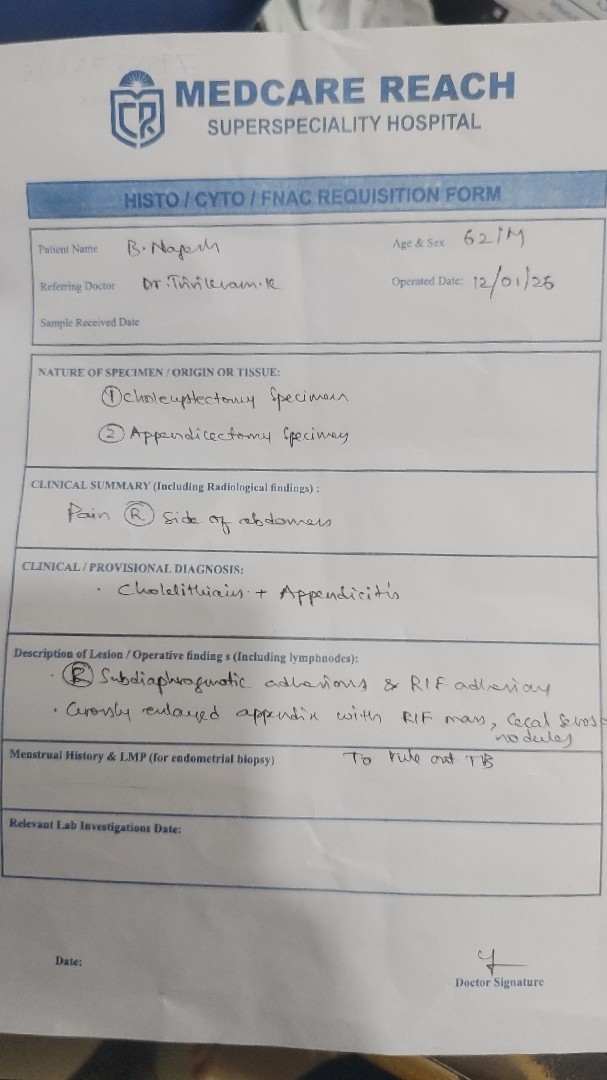 MEDCARE REACH
SUPERSPECIALITY HOSPITAL
HISTO / CYTO / FNAC REQUISITION FORM
Patient Name B. Nagesh
Age & Sex 62/M
Referring Doctor Dr. Trivikram.K
Operated Date: 12/01/26
Sample Received Date
NATURE OF SPECIMEN / ORIGIN OR TISSUE:
① Cholecystectomy Specimen
② Appendicectomy Specimen
CLINICAL SUMMARY (Including Radiological findings) :
Pain Ⓡ Side of abdomen
CLINICAL / PROVISIONAL DIAGNOSIS:
· Cholelithiasis + Appendicitis
Description of Lesion / Operative finding s (Including lymphnodes):
· Ⓡ Subdiaphragmatic adhesions & RIF adhesions
· Grossly enlarged appendix with RIF mass, Cecal
nodules
Menstrual History & LMP (for endometrial biopsy)
To rule out TB
Relevant Lab Investigations Date:
Date:
Doctor Signature